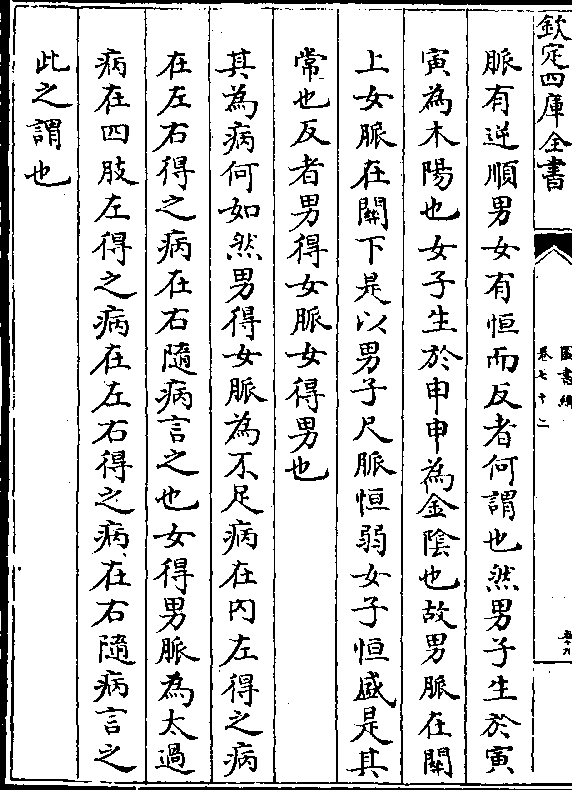 欽定四庫全書
圖書編
卷七十二
脈有逆順男女有恒而反者何謂也然男子生於寅
寅為木陽也女子生於申申為金陰也故男脈在關
上女脈在關下是以男子尺脈恒弱女子恒盛是其
常也反者男得女脈女得男也
其為病何如然男得女脈為不足病在内左得之病
在左右得之病在右隨病言之也女得男脈為太過
病在四肢左得之病在左右得之病在右隨病言之
此之謂也